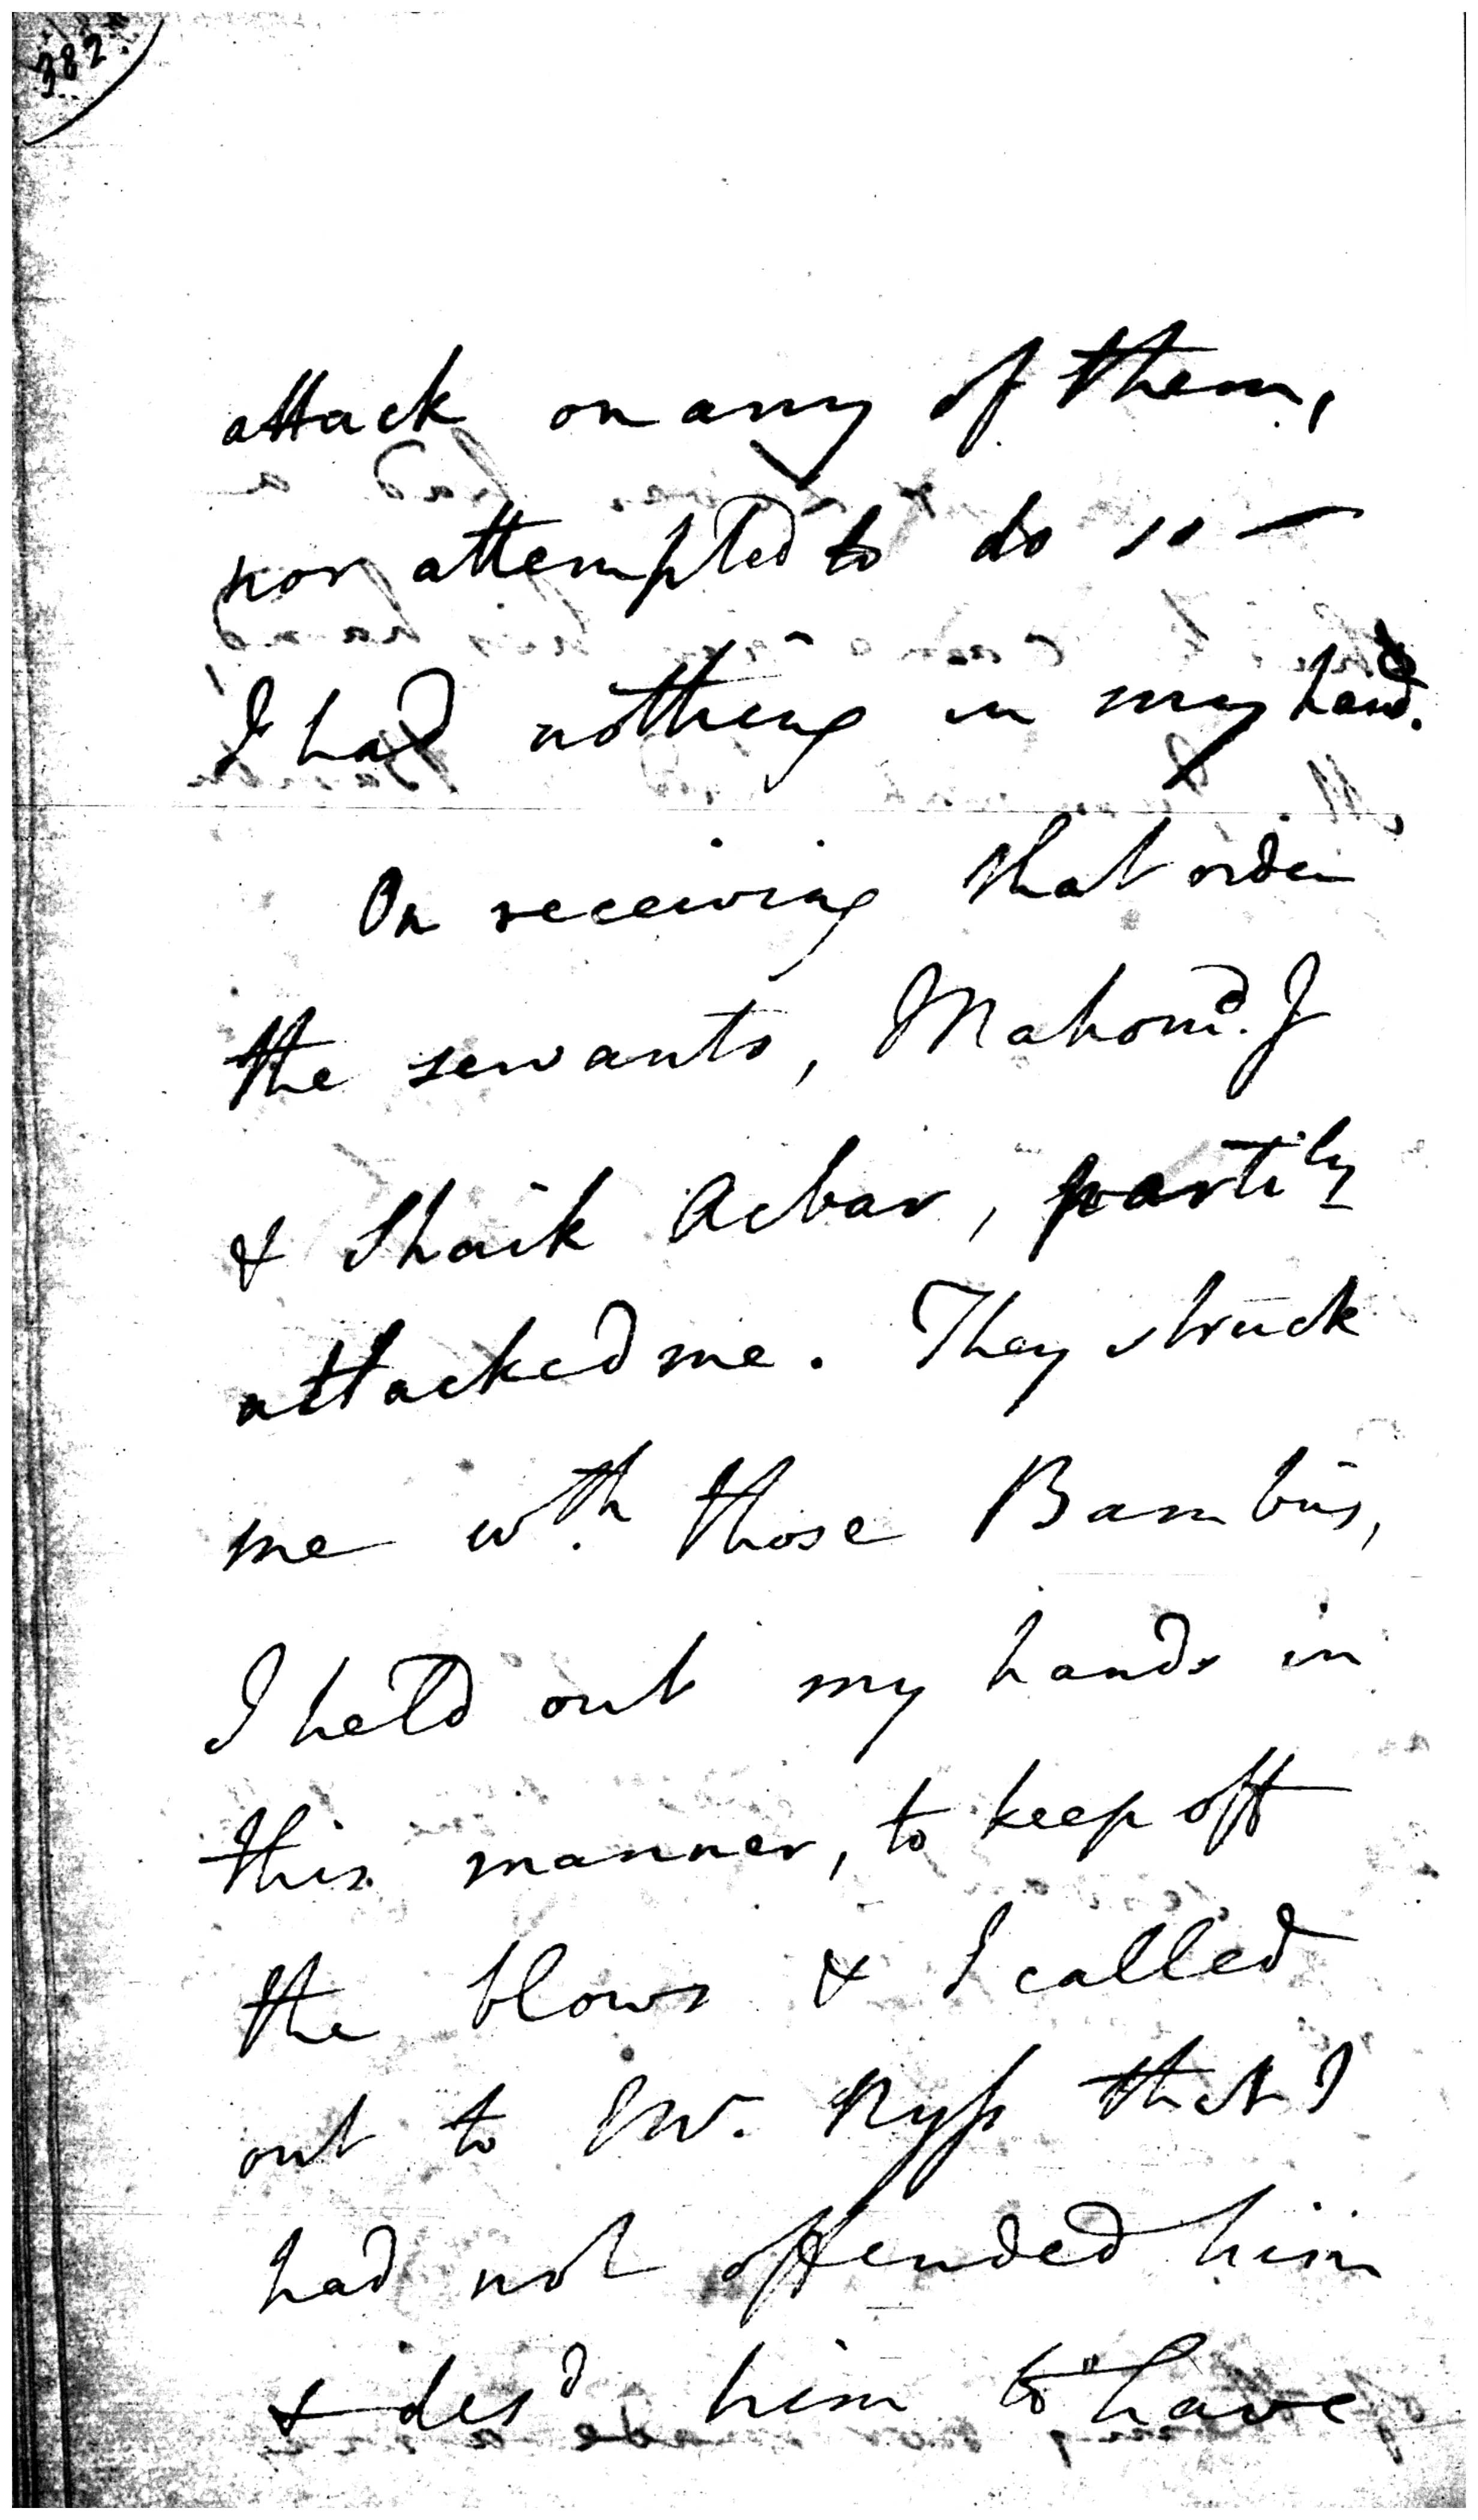 382
attack on any of them,
nor attempted to do so —
I had nothing in my hand.
On receiving that order
the servants, Mahomd. J
& Shaik Acbar, partily
attacked me. They struck
me wth. those Bambus,
I held out my hands in
this manner, to keep off
the blows & I called
out to Mr. Nyss that I
had not offended him
& desd him to have